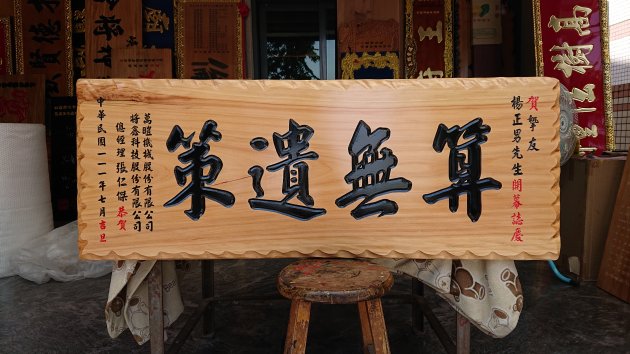 賀 摯友
楊正男先生開幕誌慶
算無遺策
萬暄機械股份有限公司
將鑫科技股份有限公司
總經理 張仁保 恭賀
中華民國一一一年七月吉旦